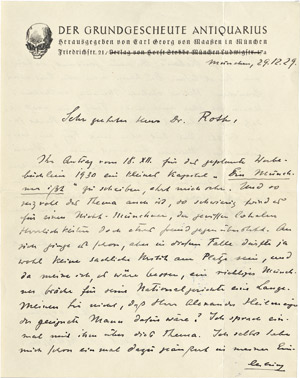 DER GRUNDGESCHEUTE ANTIQUARIUS
Herausgegeben von Carl Georg von Maassen in München
Friedrichstr. 21, Verlag von Horst Stobbe München Ludwigstr. 17a
München, 29.12.29.
Sehr geehrter Herr Dr. Roth,
Ihr Antrag vom 18. XII. für das geplante Werbe-
büchlein 1930 ein kleines Kapitel „Der Münch-
ner ißt" zu schreiben, ehrt mich sehr. Und so
reizvoll das Thema auch ist, so schwierig wird es
für einen Nicht-Münchner, der gewissen lokalen
Herrlichkeiten doch etwas fremd gegenübersteht. An
sich ginge es schon, aber in diesem Falle dürfte ja
wohl keine sachliche Kritik am Platze sein, und
da meine ich, es wäre besser, ein richtiger Münch-
ner bräche für seine Nationalgerichte eine Lanze.
Meinen Sie nicht, daß Herr Alexander Heilmeyer
der geeignete Mann dafür wäre? Ich sprach ein-
mal mit ihm über dies Thema. Ich selbst habe
mich schon einmal dazu geäußert in meiner Ein-
leitung